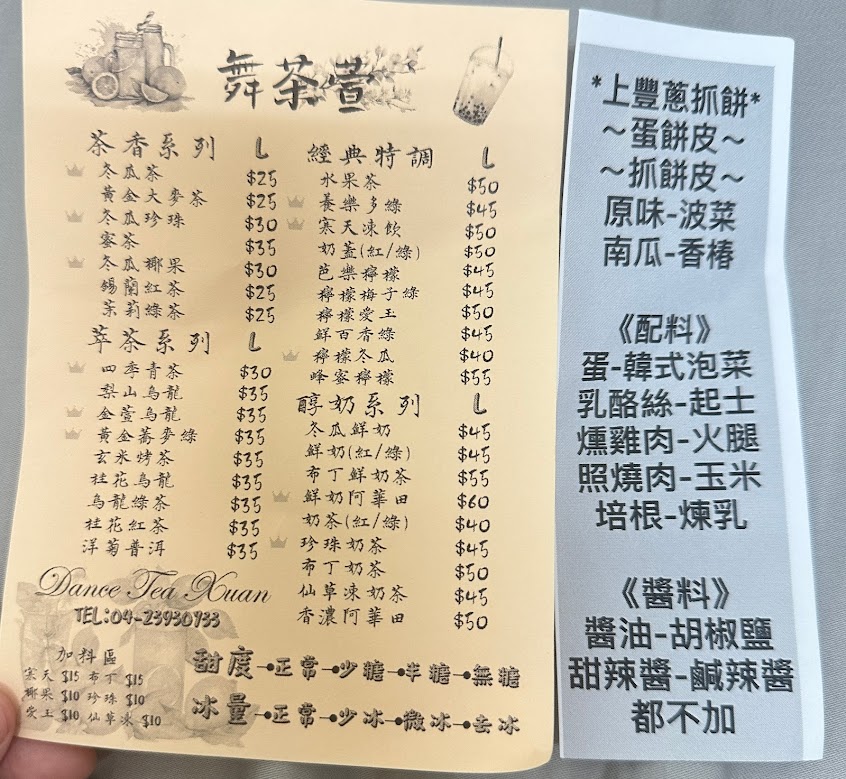 舞茶萱
茶香系列 L
冬瓜茶 $25
黃金大麥茶 $25
冬瓜珍珠 $30
蜜茶 $35
冬瓜椰果 $30
錫蘭紅茶 $25
茉莉綠茶 $25
萃茶系列 L
四季青茶 $30
梨山烏龍 $35
金萱烏龍 $35
黃金蕎麥綠 $35
玄米烤茶 $35
桂花烏龍 $35
烏龍綠茶 $35
桂花紅茶 $35
洋菊普洱 $35
經典特調 L
水果茶 $50
養樂多綠 $45
寒天凍飲 $50
奶蓋(紅/綠) $50
芭樂檸檬 $45
檸檬梅子綠 $45
檸檬愛玉 $50
鮮百香綠 $45
檸檬冬瓜 $40
蜂蜜檸檬 $55
醇奶系列 L
冬瓜鮮奶 $45
鮮奶(紅/綠) $45
布丁鮮奶茶 $55
鮮奶阿華田 $60
奶茶(紅/綠) $40
珍珠奶茶 $45
布丁奶茶 $50
仙草凍奶茶 $45
香濃阿華田 $50
Dance Tea Xuan
TEL:04-23930933
加料區
寒天 $15 布丁 $15
椰果 $10 珍珠 $10
愛玉 $10 仙草凍 $10
甜度→正常→少糖→半糖→無糖
冰量→正常→少冰→微冰→去冰
*上豐蔥抓餅*
～蛋餅皮～
～抓餅皮～
原味-波菜
南瓜-香椿
《配料》
蛋-韓式泡菜
乳酪絲-起士
燻雞肉-火腿
照燒肉-玉米
培根-煉乳
《醬料》
醬油-胡椒鹽
甜辣醬-鹹辣醬
都不加